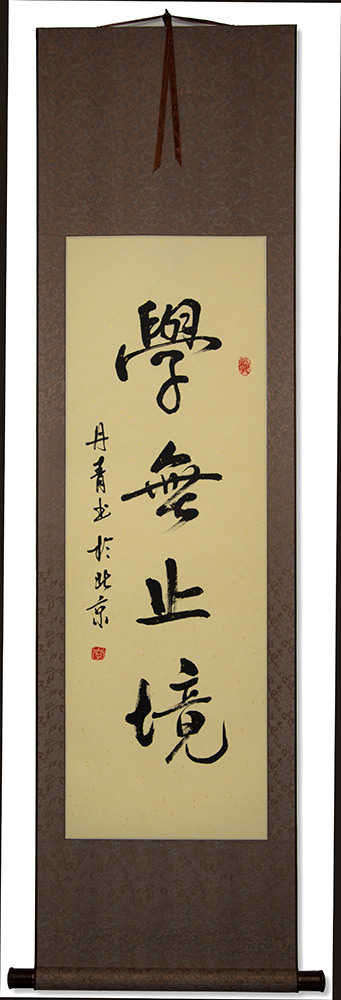 學無止境
丹青书於北京